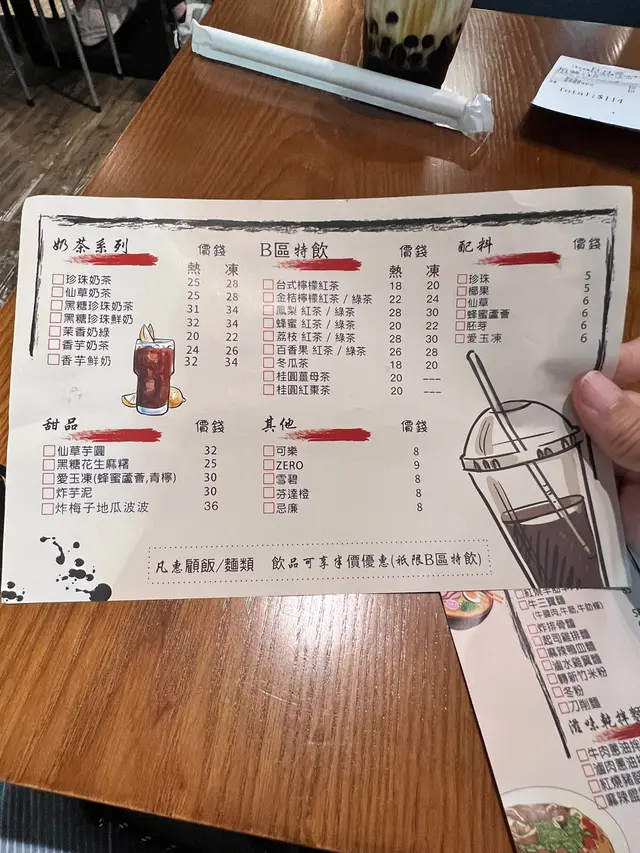 Total:$114
奶茶系列 價錢
熱 凍
珍珠奶茶 25 28
仙草奶茶 25 28
黑糖珍珠奶茶 31 34
黑糖珍珠鮮奶 32 34
茉香奶綠 20 22
香芋奶茶 24 26
香芋鮮奶 32 34
B區特飲 價錢
熱 凍
台式檸檬紅茶 18 20
金桔檸檬紅茶 / 綠茶 22 24
鳳梨 紅茶 / 綠茶 28 30
蜂蜜 紅茶 / 綠茶 20 22
荔枝 紅茶 / 綠茶 28 30
百香果 紅茶 / 綠茶 26 28
冬瓜茶 18 20
桂圓薑母茶 20 ---
桂圓紅棗茶 20 ---
配料 價錢
珍珠 5
椰果 5
仙草 6
蜂蜜蘆薈 6
胚芽 6
愛玉凍 6
甜品 價錢
仙草芋圓 32
黑糖花生麻糬 25
愛玉凍(蜂蜜蘆薈,青檸) 30
炸芋泥 30
炸梅子地瓜波波 36
其他 價錢
可樂 8
ZERO 9
雪碧 8
芬達橙 8
忌廉 8
凡惠顧飯/麵類 飲品可享半價優惠(祇限B區特飲)
牛三寶麵
(牛腩肉,牛筋,牛肋條)
炸排骨麵
起司雞排麵
麻辣鴨血麵
滷水雞翼麵
轉新竹米粉
冬粉
刀削麵
滋味乾拌麵
牛肉蔥油拌
滷肉蔥油拌
紅燒豬
麻辣